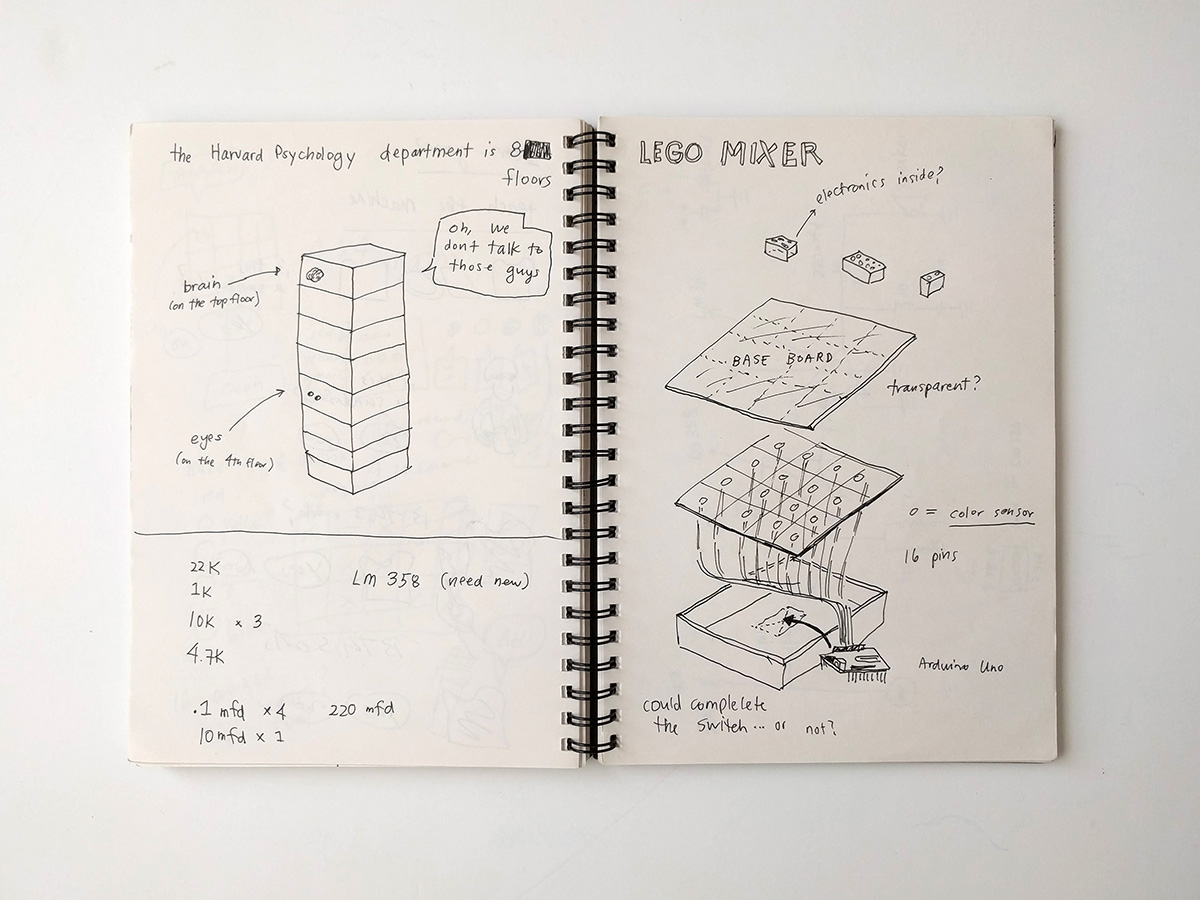 the Harvard Psychology department is 8
floors
oh, we
dont talk to
those guys
brain
(on the top floor)
eyes
(on the 4th floor)
22K
1K
10K x 3
4.7K
Lm 358 (need new)
.1 mfd x4 220 mfd
10mfd x 1
LEGO MIXER
electronics inside?
BASE BOARD
transparent?
o = color sensor
16 pins
Arduino Uno
could complecete
the switch... or not?